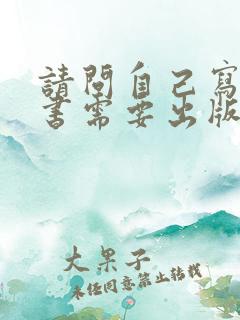 請問自己寫
書需要出版
大果子
未經同意禁止轉載